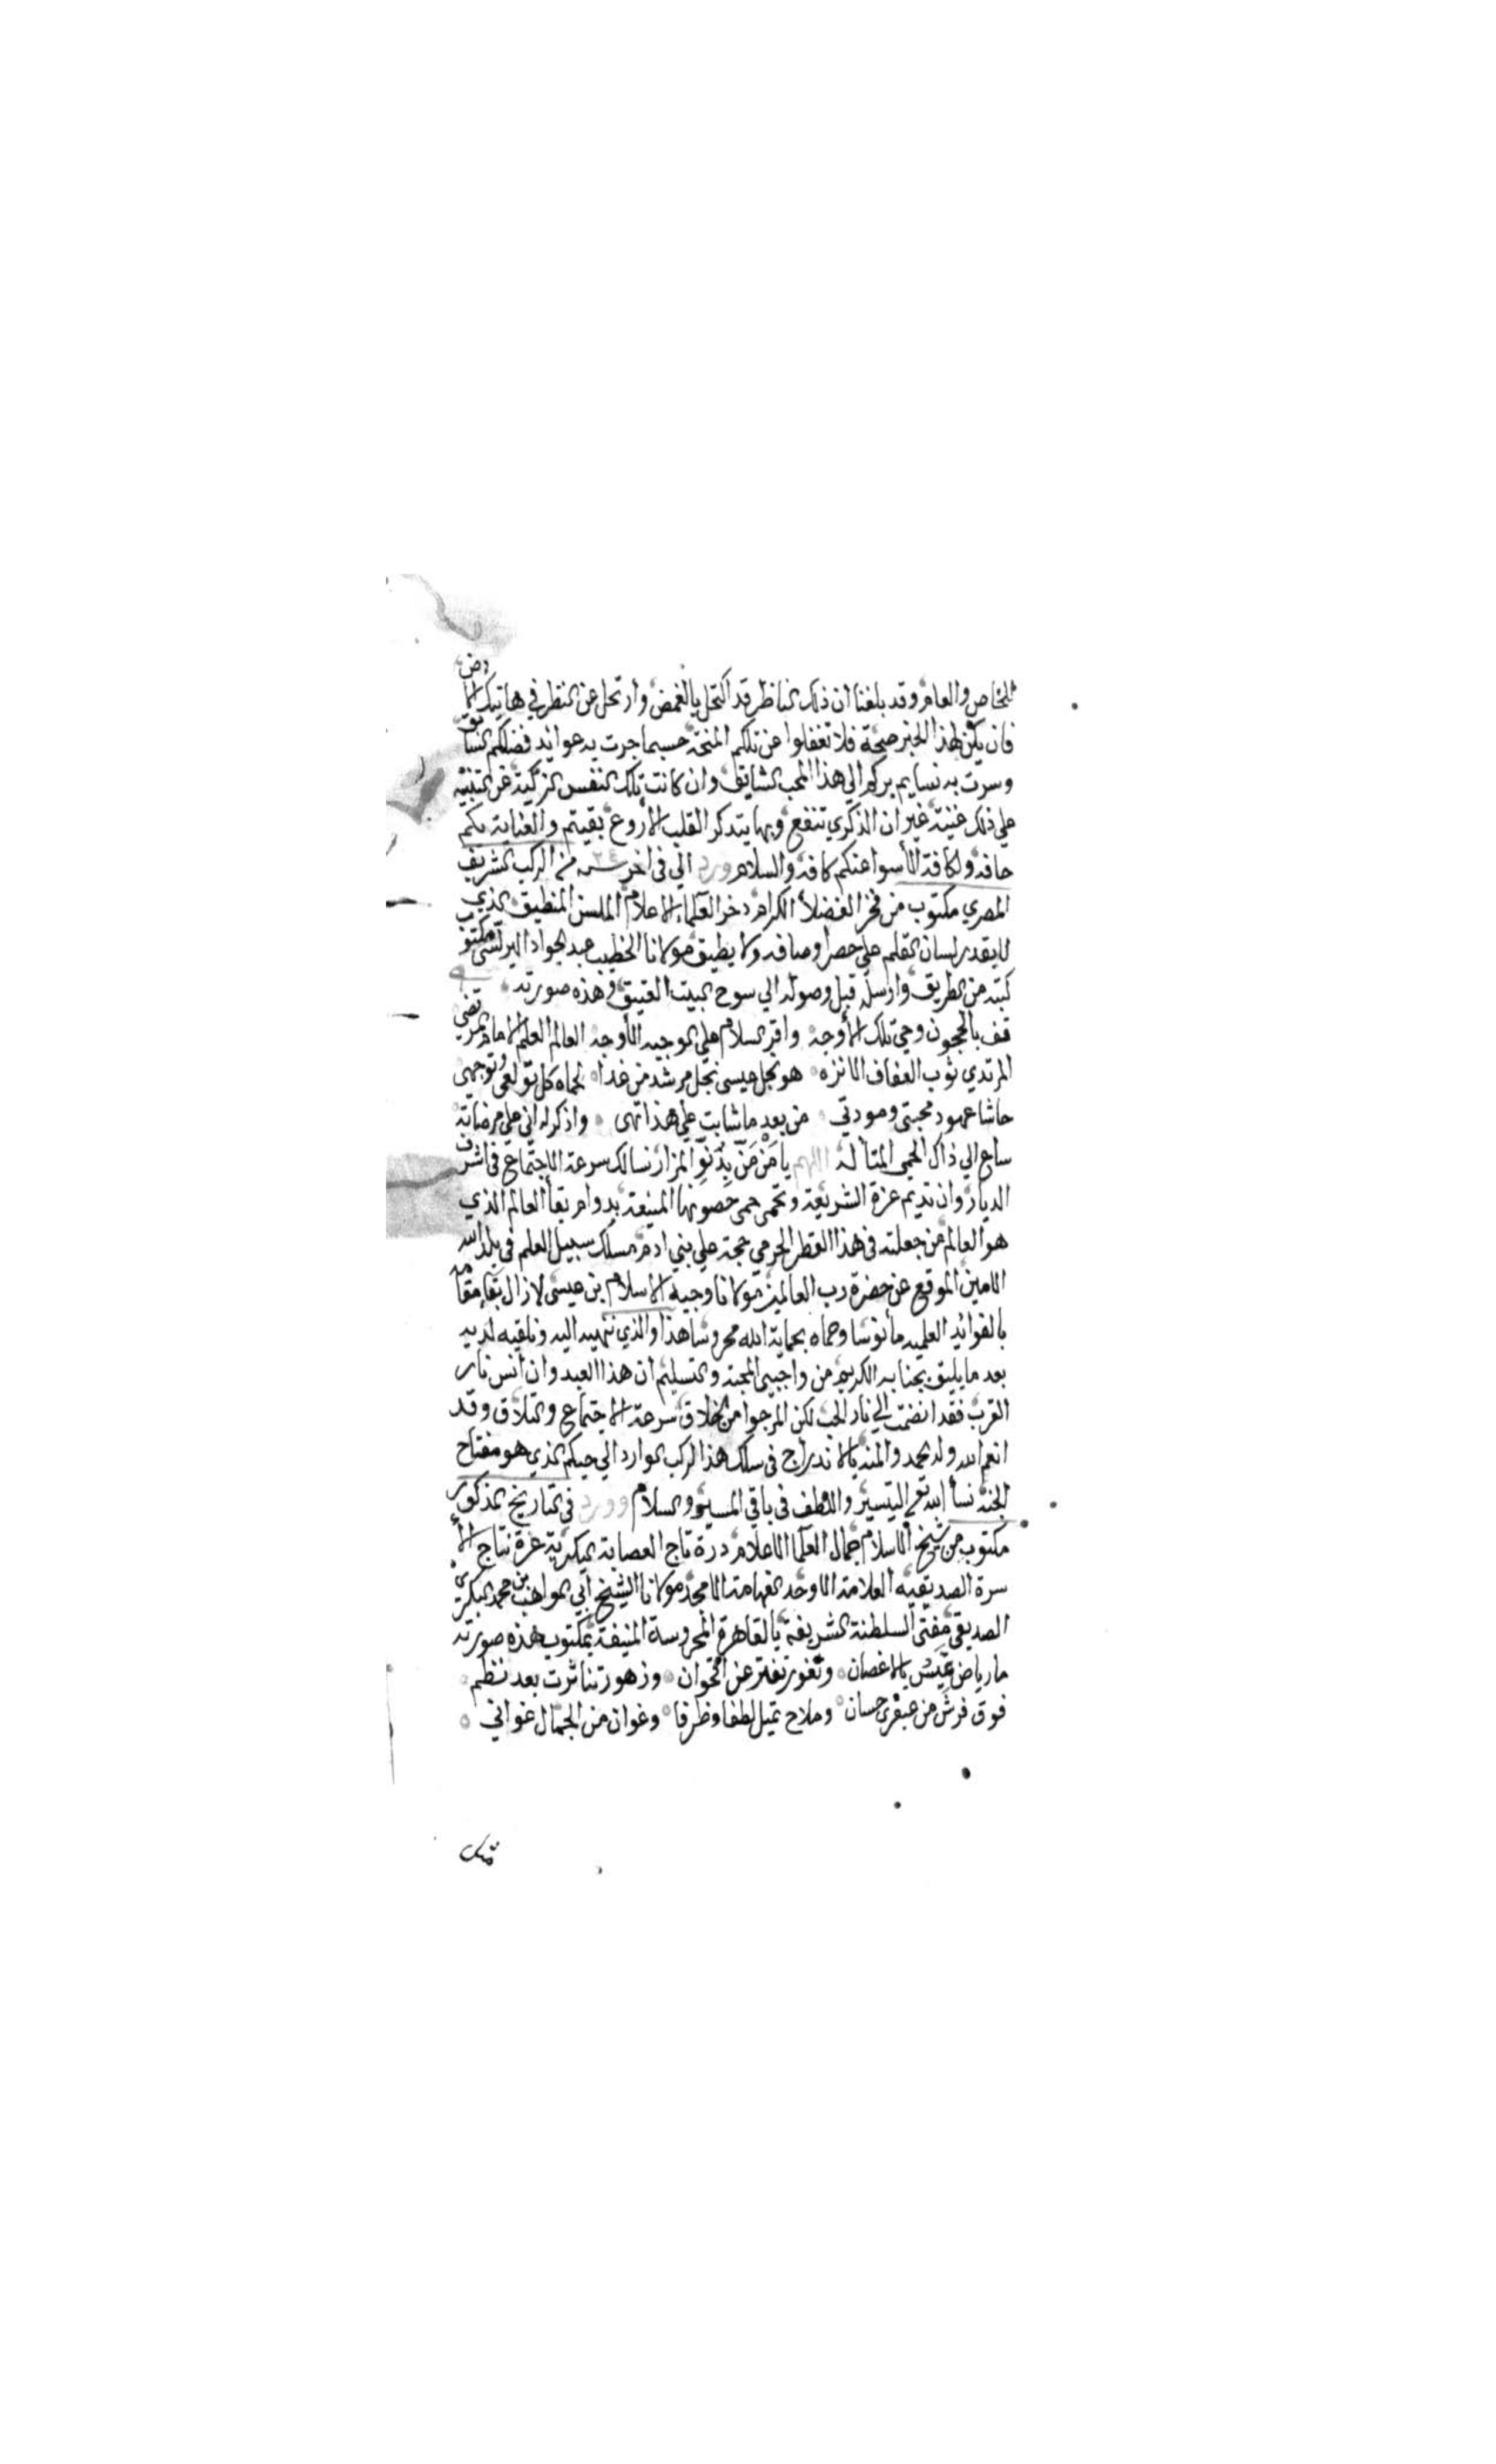 للخاص والعام وقد بلغنا ان ذلك الناظر قد اكتحل بالغمض وارتحل عن النظر في هاتيك الا رض
فان يكن لهذا الخبر صحة فلا تغفلوا عن تلكم المنحة حسبما جرت به عوايد فضلكم السابق
وسرت به نسايم بركم الي هذا المحب الشايق وان كانت تلك النفس الزكية عن التنبيه
علي ذلك غنية غير ان الذكري تنفع وبها يتدكر القلب الأروع بقيتم والعناية بكم
حافة ولكافة الأسوا عنكم كافة والسلام ورد الي في اخر سنه من الركب الشريف
المصري مكتوب من فخر الفضلأ الكرام دخر العلماء الاعلام الملسن المنطيق الذي
لا يقدر لسان القلم علي حصر اوصافه ولا يطيق مولانا الخطيب عبد الجواد البرلسي مكتوب
كتبه من الطريق وارسله قبل وصوله الي سوح البيت العتيق وهذه صورته
قف بالحجون وحي تلك الأوجه واقر السلام علي الوجيه الأوجه العالم العلم الامام المرتضي
المرتدي ثوب العفاف الانزه هو نجل عيسى نجل مرشد من غدا لحماه كل تولعي وتوجهى
حاشا عهود محبتى ومودتي من بعد ما شابت علي هذا تهى واذكر له اني علي مرضاته
ساع الي ذاك الحمى المتأله اللهم يا من من بدنو المزار نسالك سرعة الاجتماع في اشرف
الديار وان تديم عزة الشريعة وتحمى حمى حصونها المنيعة بدوام بقأ العالم الذي
هو العالم من جعلته في هذا القطر الحرمي حجة علي بني ادم مسلك سبيل العلم في بلد الله
الامين الموقع عن حضرة رب العالمين مولانا وجيه الاسلام بن عيسى لا زال بقاء مقامه
بالفوائد العلميه مأنوسا وحماه بحماية الله محروسا هذا والذي ننهيه اليه ونلقيه لديه
بعد ما يليق بجنابه الكريم من واجبي المحبة والتسليم ان هذا العبد وان انس نار
القرب فقد انضمت الي نار الحب لكن المرجوا من الخلاق سرعة الاجتماع والتلاق وقد
انعم الله وله الحمد والمنة بالاندراج في سلك هذا الركب الوارد الي حيكم الذي هو مفتاح
الجنة نسأ الله تع التيسير واللطف في باقي المسير والسلام وورد في التاريخ المذكور
مكتوب من شيخ الاسلام جمال العلما الاعلام درة تاج العصابة البكرية غرة نتاج الأ
سرة الصديقيه العلامة الاوحد الفهامة الامجد مولانا الشيخ أبي المواهب بن محمد البكري
الصديقي مفتى السلطنة الشريفة بالقاهرة المحروسة المنيفة بمكتوب هذه صورته
ما رياض تميس بالاغصان وثغور تفتر عن اقحوان وزهور تناثرت بعد نظم
فوق فرش من عبقري حسان وملاح تميل لطفا وظرفا وغوان من الجمال غواني